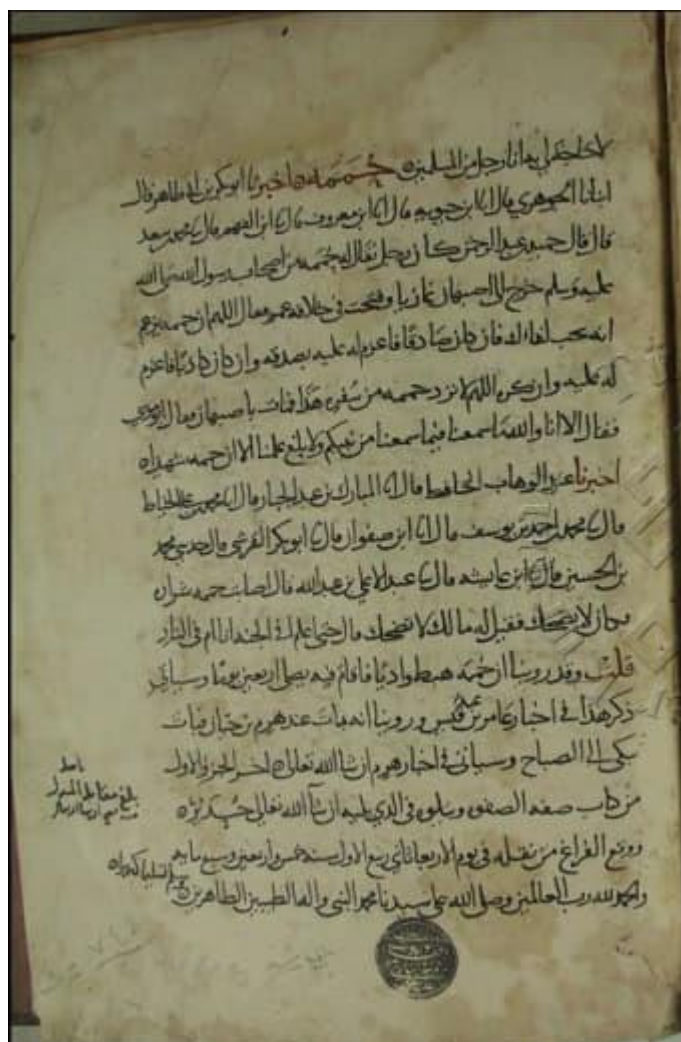 لا حاجة لي بها انا رجل من المسلمين حممه اخبرنا ابو بكر بن ابي طاهر قال
انبانا الجوهري قال انا ابن حيويه قال انا ابن معروف قال انا ابن الفهم قال نا محمد بن سعد
قال قال حميد بن عبد الرحمن كان رجل يقال له حممه من اصحاب رسول الله صلى الله
عليه وسلم خرج الى اصبهان غازيا وفتحت في خلافة عمر فقال اللهم ان حممه يزعم
انه يحب لقاءك فان كان صادقا فاعزم له عليه بصدقه وان كان كاذبا فاعزم
له عليه وان كره اللهم لا ترد حممه من سفره هذا فمات باصبهان فقال ابو موسى
فقال الا انا والله ما سمعنا فيما سمعنا من نبيكم ولا بلغ علمنا الا ان حممه شهيد
اخبرنا عبد الوهاب الحافظ قال انا المبارك بن عبد الجبار قال انا محمد بن علي الخياط
قال نا محمد احمد بن يوسف قال نا ابن صفوان قال نا ابو بكر القرشي قال حدثني محمد
بن الحسين قال نا ابن عايشه قال نا عبد الاعلى بن عبد الله قال
وكان لا يضحك فقيل له مالك لا تضحك قال حتى اعلم افي الجنة انا ام في النار
قلت وقد روينا ان حممه هبط واديا فاقام فيه يصلي اربعين يوما وسياتي
ذكر هذا في اخبار عامر بن عبد قيس وروينا انه بات عند هرم بن حيان فبات
يبكي الى الصباح وسياتي في اخبار هرم ان شا الله تعالى اخر الجزء الاول
من كتاب صفه الصفوه ويتلوه في الذي يليه ان شا الله تعالى
ووقع الفراغ من نقله في يوم الاربعا ثاني ربيع الاول سنه خمس واربعين وسبع مايه
والحمد لله رب العالمين وصلى الله على سيدنا محمد النبي واله الطيبين الطاهرين وسلم تسليما كثيرا
بلغ مقابله